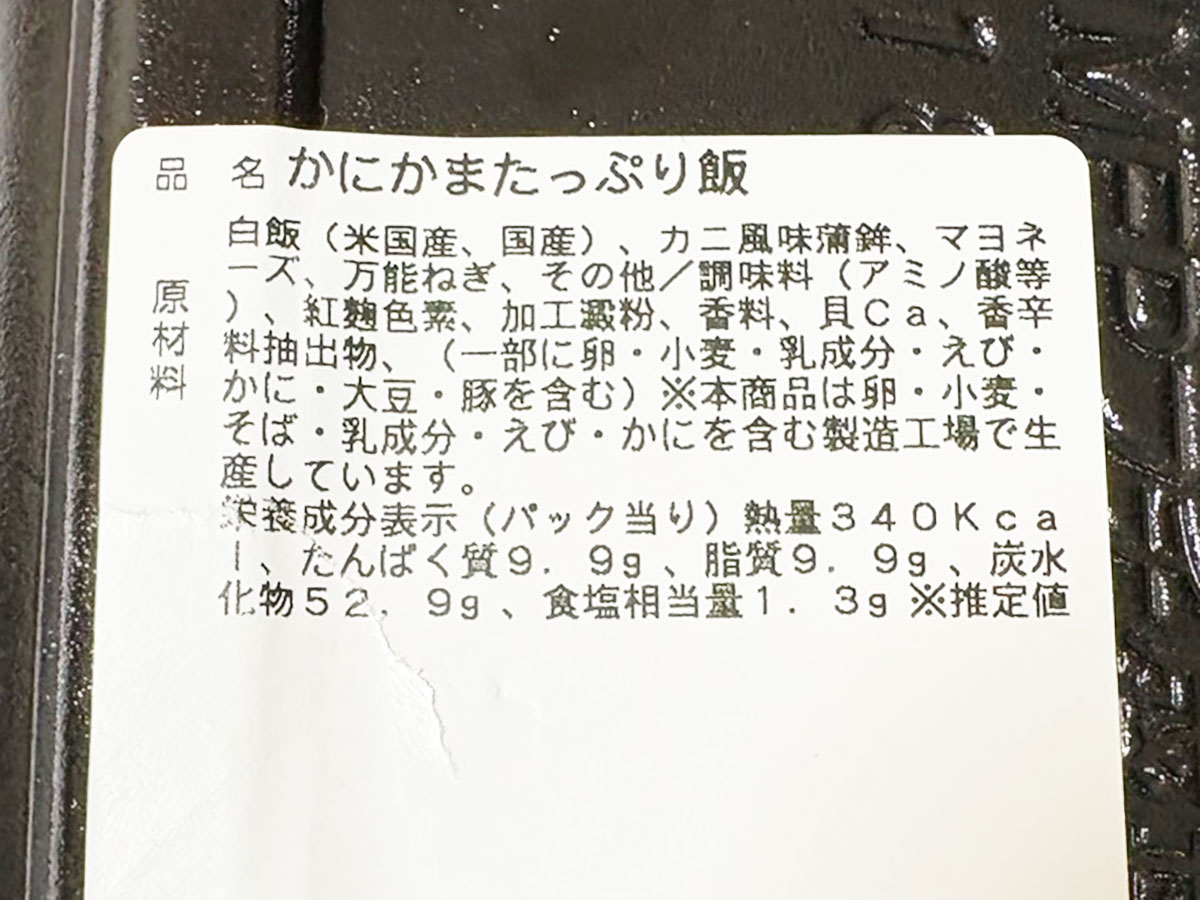 品名 かにかまたっぷり飯
原材料
白飯（米国産、国産）、カニ風味蒲鉾、マヨネ
ーズ、万能ねぎ、その他／調味料（アミノ酸等
）、紅麹色素、加工澱粉、香料、貝Ｃａ、香辛
料抽出物、（一部に卵・小麦・乳成分・えび・
かに・大豆・豚を含む）※本商品は卵・小麦・
そば・乳成分・えび・かにを含む製造工場で生
産しています。
栄養成分表示（パック当り）熱量３４０Ｋｃａ
ｌ、たんぱく質９．９ｇ、脂質９．９ｇ、炭水
化物５２．９ｇ、食塩相当量１．３ｇ※推定値